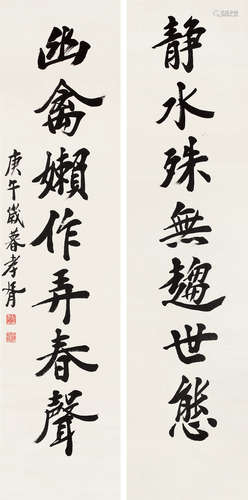 静水殊無趨世態
幽禽嬾作弄春聲
庚午歲暮孝胥